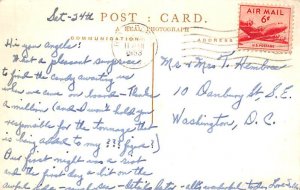 Oct-24th
POST CARD.
A REAL PHOTOGRAPH
COMMUNICATION
ADDRESS
AIR MAIL
6¢
U.S. POSTAGE
1953
Hi you angels!
What a pleasant surprise
to find the candy awaiting us
when we came on board - Thanks
a million, (and I won't hold you
responsible for the tonnage that
is being added to my ??? figure!)
Our first night was a riot
and the first day a bit on the
Mr & Mrs T.
10 Danbury St., S.E.
Washington, D.C.